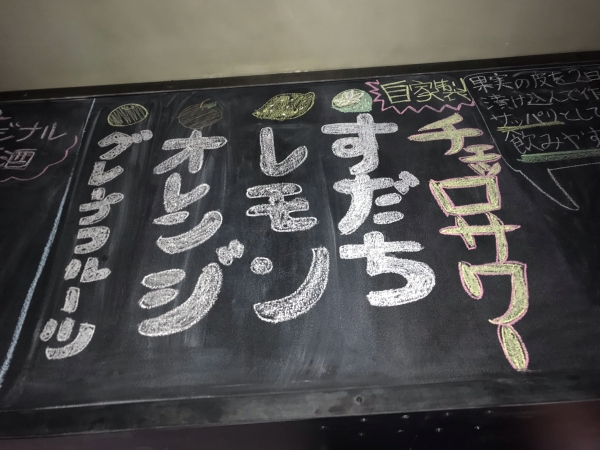 果実の皮を2日
漬け込んで作
サッパリとして
飲みやす
自家製
チェッロサワー
すだち
レモン
オレンジ
グレープフルーツ
ジナル
酒